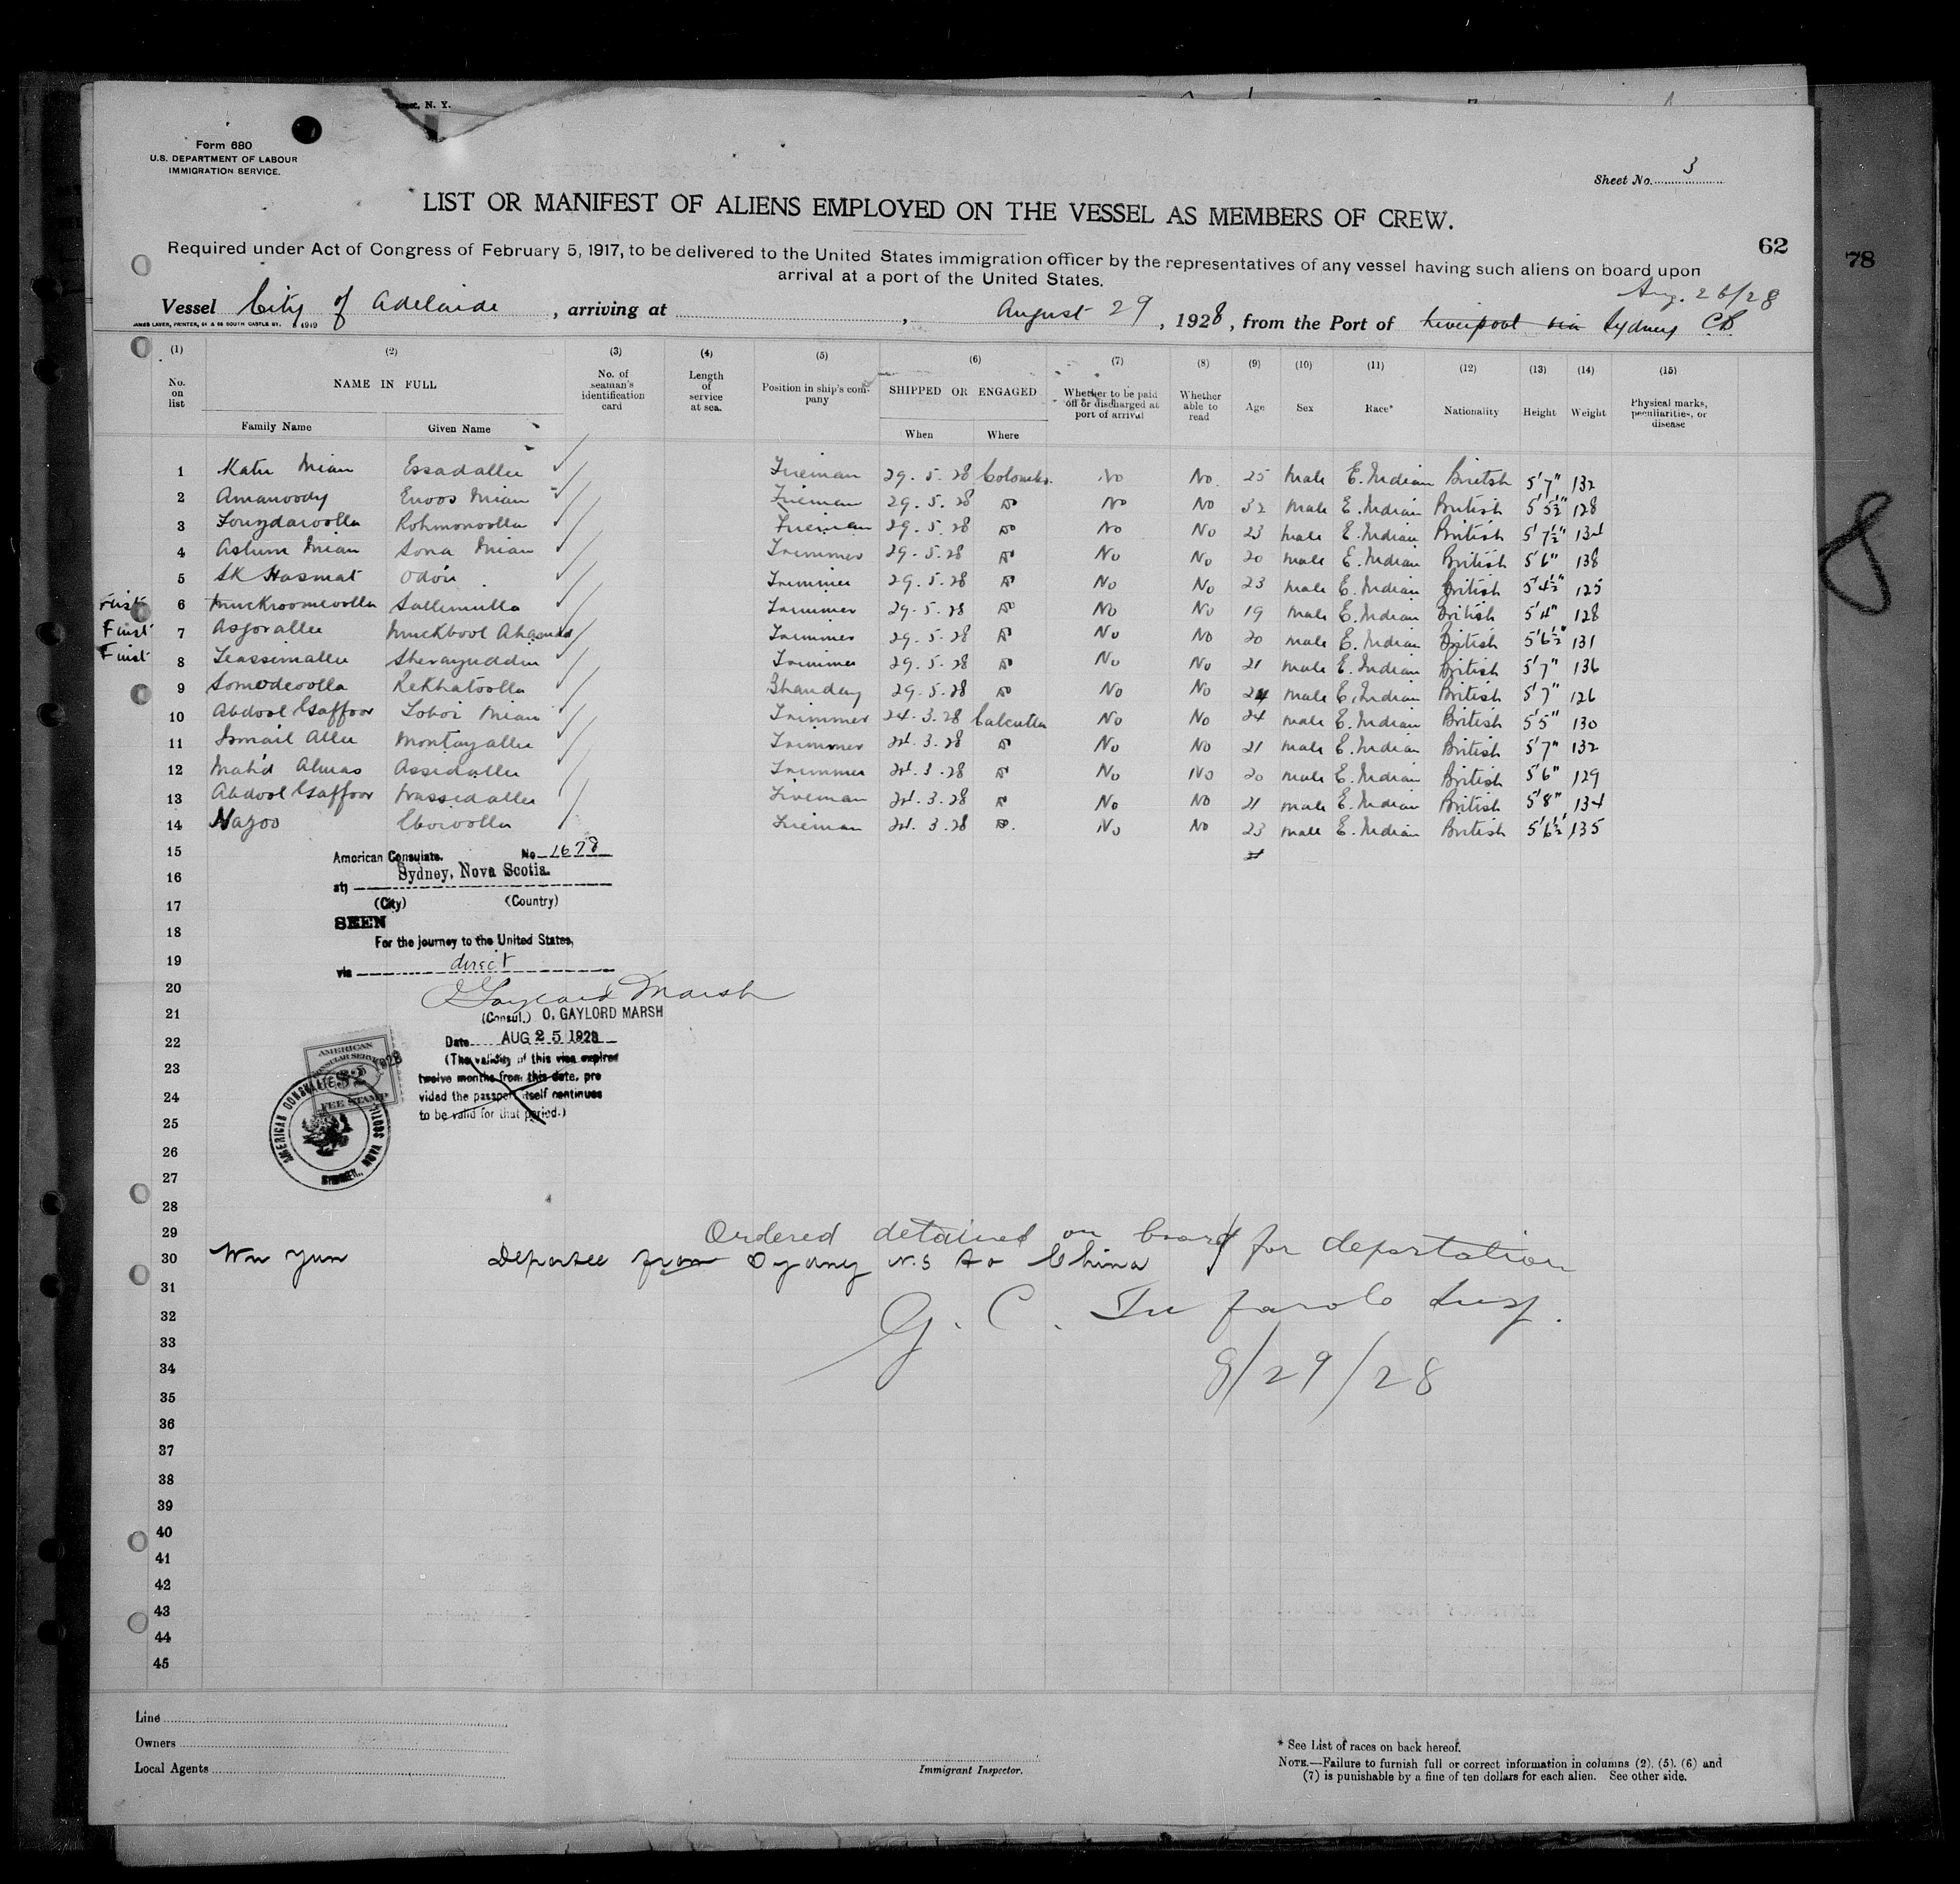 Inst. N. Y.
Form 680
U.S. DEPARTMENT OF LABOUR
IMMIGRATION SERVICE.
Sheet No. 3
LIST OR MANIFEST OF ALIENS EMPLOYED ON THE VESSEL AS MEMBERS OF CREW.
62
78
Required under Act of Congress of February 5, 1917, to be delivered to the United States immigration officer by the representatives of any vessel having such aliens on board upon
arrival at a port of the United States.
Aug. 26/28
Vessel City of Adelaide , arriving at , August 29 , 1928, from the Port of Liverpool via Sydney CB
JAMES LAVER, PRINTER, SOUTH CASTLE ST.
(1) (2) (3) (4) (5) (6) (7) (8) (9) (10) (11) (12) (13) (14) (15)
No. on list NAME IN FULL No. of seaman's identification card Length of service at sea. Position in ship's company SHIPPED OR ENGAGED Whether to be paid off or discharged at port of arrival Whether able to read Age Sex Race* Nationality Height Weight Physical marks, peculiarities, or disease
Family Name Given Name When Where
1 Katu Mian Essadallee Fireman 29.5.28 Colombo No No. 25 male E. Indian British 5'7" 132
2 Amanoody Enoos Mian Fireman 29.5.28 Do No No 32 male E. Indian British 5'5½" 128
3 Rohmonoolla Fireman 29.5.28 Do No No 23 male E. Indian British 5'7½" 134
4 Aslum Mian Sona Mian Trimmer 29.5.28 Do No No 20 male E. Indian British 5'6" 138
5 SK Hasmat Odori Trimmer 29.5.28 Do No No 23 male E. Indian British 5'4½" 125
First 6 Muckroomeoolla Sallimulla Trimmer 29.5.28 Do No No 19 male E. Indian British 5'4" 128
First 7 Asforallee Muckbool Ahamed Trimmer 29.5.28 Do No No 20 male E. Indian British 5'6½" 131
First 8 Sherayuddin Trimmer 29.5.28 Do No No 21 male E. Indian British 5'7" 136
9 Somodeoolla Rekhatoolla Bhandary 29.5.28 Do No No 24 male E. Indian British 5'7" 126
10 Abdool Gaffoor Mian Trimmer 24.3.28 Calcutta No No 24 male E. Indian British 5'5" 130
11 Ismail Allee Montazallee Trimmer 24.3.28 Do No No 21 male E. Indian British 5'7" 132
12 Mah'd Assidallee Trimmer 24.3.28 Do No No 20 male E. Indian British 5'6" 129
13 Abdool Gaffoor Wassidallee Fireman 24.3.28 Do No No 21 male E. Indian British 5'8" 134
14 Nazoo Fireman 24.3.28 Do. No No 23 male E. Indian British 5'6½" 135
15
16
17
18
19
20
21
22
23
24
25
26
27
28
29
30
31
32
33
34
35
36
37
38
39
40
41
42
43
44
45
American Consulate. No 1678
at Sydney, Nova Scotia.
(City) (Country)
SEEN
For the journey to the United States,
via direct
O Gaylord Marsh
(Consul.) O. GAYLORD MARSH
Date AUG 25 1928
(The validity of this visa expires
twelve months from this date, pro
vided the passport itself continues
to be valid for that period.)
AMERICAN
CONSULAR SERVICE
FEE STAMP
AMERICAN CONSULATE
SYDNEY, NOVA SCOTIA
Ordered detained on board for deportation
Wu Yun Deportee from Sydney N.S to China
G. C. Insp.
8/29/28
8
Line
Owners
Local Agents
Immigrant Inspector.
* See List of races on back hereof.
NOTE.—Failure to furnish full or correct information in columns (2), (5), (6) and
(7) is punishable by a fine of ten dollars for each alien. See other side.